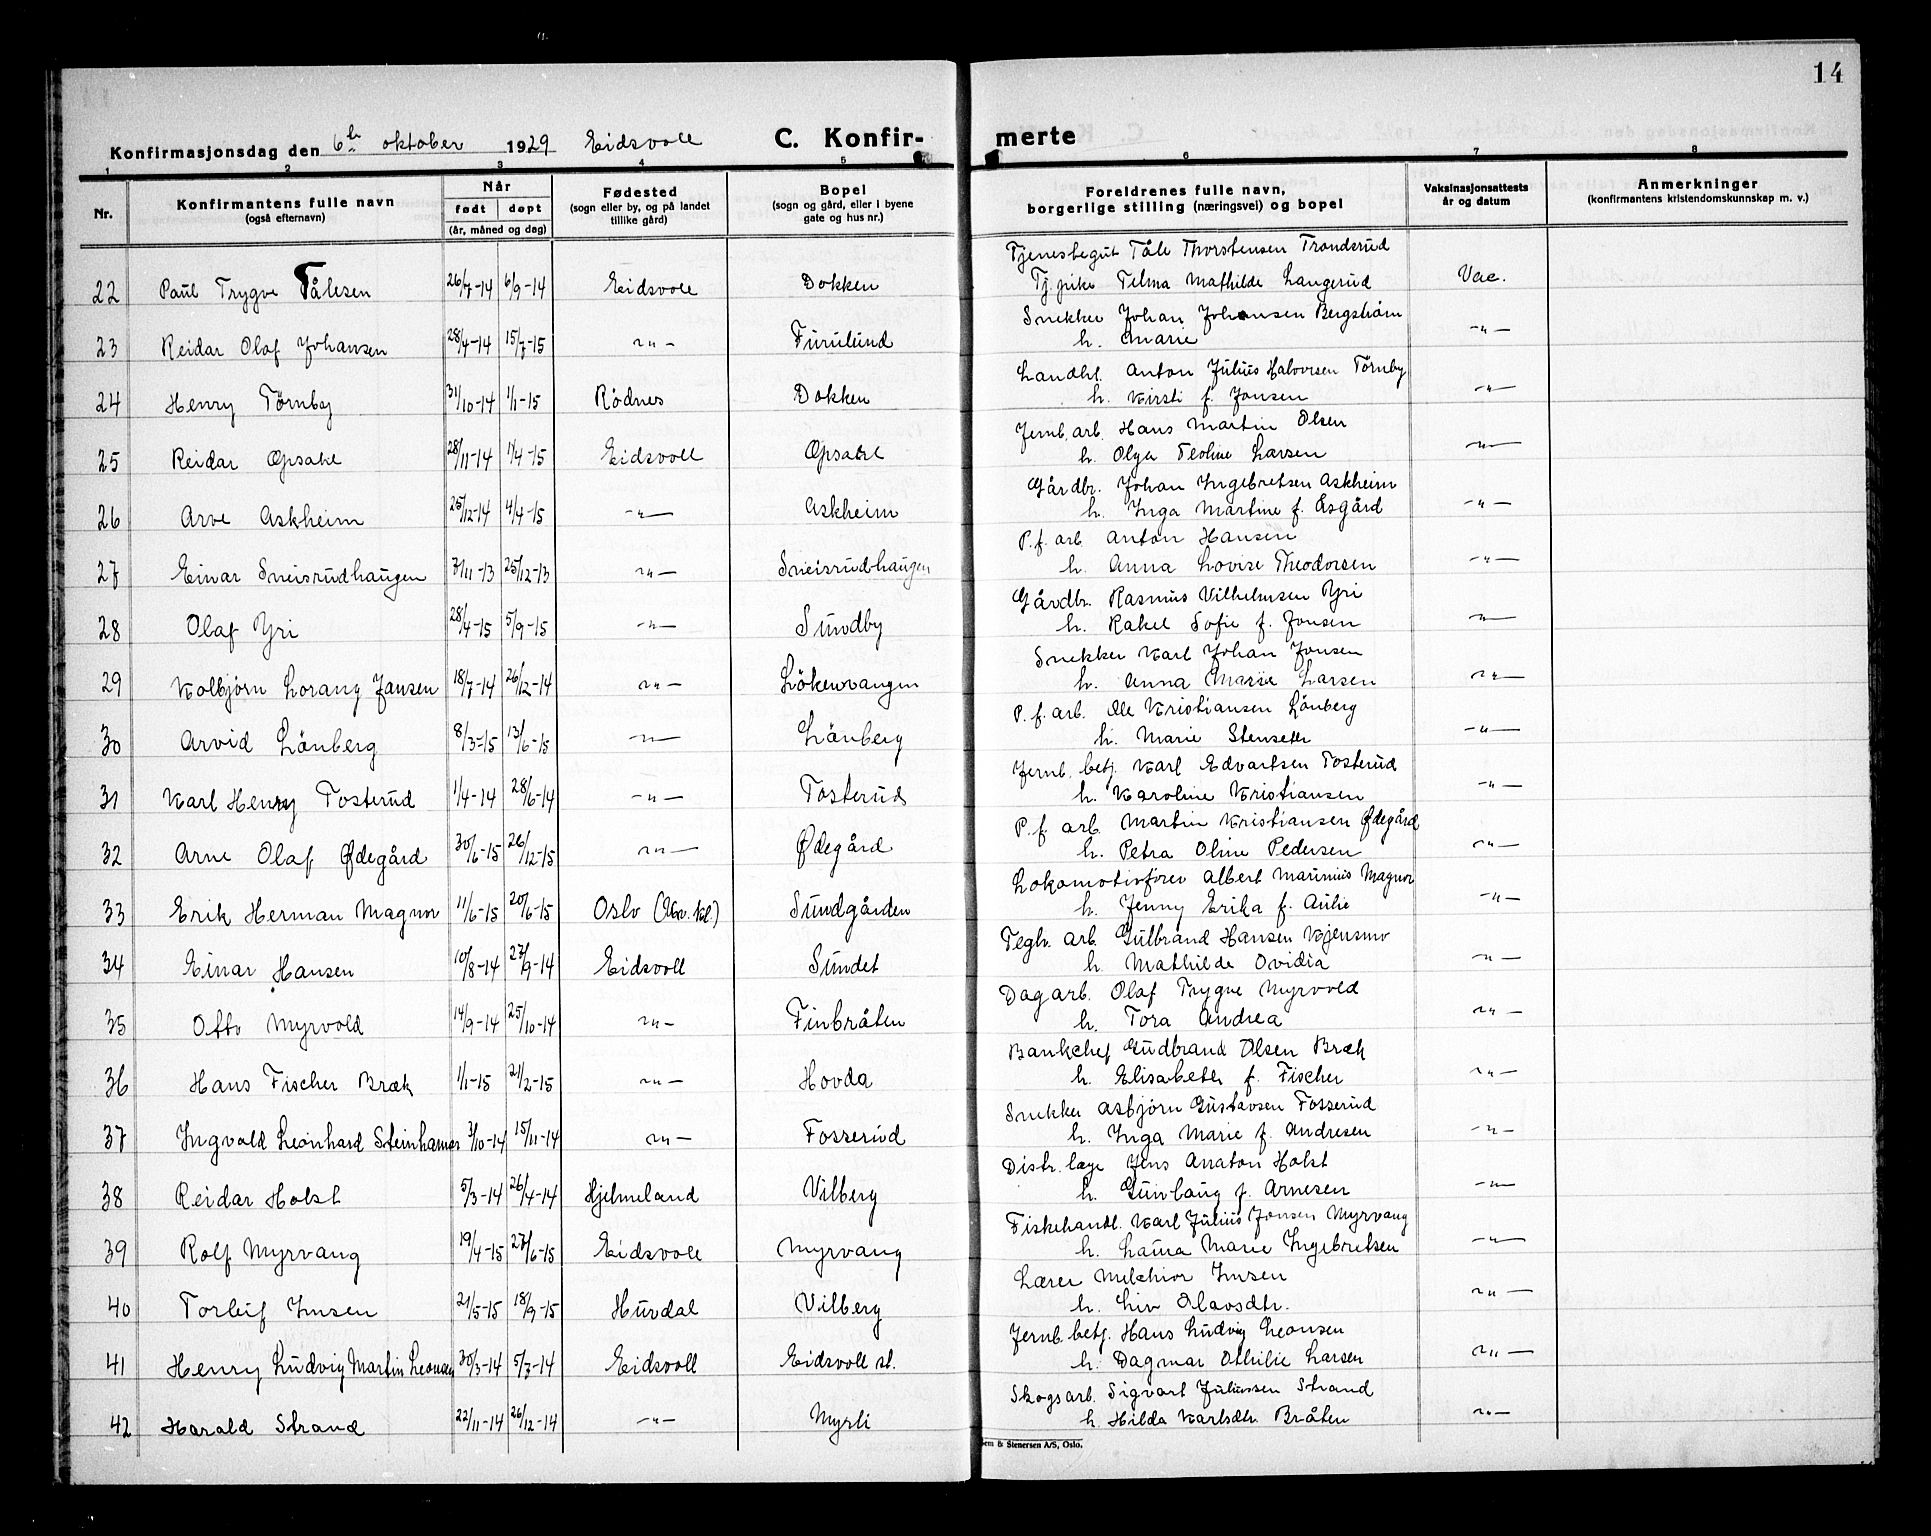 14
Konfirmasjonsdag den 6te oktober 1929 Eidsvoll C. Konfir- merte
1 2 3 4 5 6 7 8
Nr. Konfirmantens fulle navn (også efternavn) Når født døpt (år, måned og dag) Fødested (sogn eller by, og på landet tillike gård) Bopel (sogn og gård, eller i byene gate og hus nr.) Foreldrenes fulle navn, borgerlige stilling (næringsvei) og bopel Vaksinasjonsattests år og datum Anmerkninger (konfirmantens kristendomskunnskap m. v.)
Tjenestegut Tåle Thorstensen Trondsrud
22 Paul Trygve Tålesen 26/7-14 6/9-14 Eidsvoll Dokken Tj. pike Telma Mathilde Langerud Vac.
Snekker Johan Johansen Bergstrøm
23 Reidar Olaf Johansen 28/4-14 15/7-15 -"- Furulund h. Marie -"-
Landhl. Anton Julius Halvorsen Törnby
24 Henry Törnby 31/10-14 1/1-15 Rödnes Dokken h. Kirsti f. Jonsen -"-
Jernb. arb. Hans Martin Olsen
25 Reidar Opsahl 28/11-14 4/4-15 Eidsvoll Opsahl h. Olga Teoline Larsen -"-
Gårdbr. Johan Ingebretsen Askheim
26 Arve Askheim 25/12-14 4/4-15 -"- Askheim h. Inga Martine f. Åsgård -"-
P. f. arb. Anton Hansen
27 Einar Sneisrudhaugen 7/11-13 25/12-13 -"- Sneisrudhaugen h. Anna Lovise Theodorsen -"-
Gårdbr. Rasmus Vilhelmsen Yri
28 Olaf Yri 28/4-15 5/9-15 -"- Sundby h. Rakel Sofie f. Jonsen -"-
Snekker Karl Johan Jonsen
29 Kolbjørn Lorang Jansen 18/7-14 26/12-14 -"- Lökenvangen h. Anna Marie Larsen -"-
P. f. arb. Ole Kristiansen Lönberg
30 Arvid Lönberg 8/3-15 13/6-15 -"- Lönberg h. Marie Stenseth -"-
Jernb. betj. Karl Edvartsen Tosterud
31 Karl Henry Tosterud 1/4-14 28/6-14 -"- Tosterud h. Karoline Kristiansen -"-
P. f. arb. Martin Kristiansen Ødegård
32 Arne Olaf Ødegård 30/6-15 26/12-15 -"- Ødegård h. Petra Oline Pedersen -"-
Lokomotivfører Albert Maurius Magnor
33 Erik Herman Magnor 11/6-15 20/6-15 Oslo Sundgården h. Jenny Erika f. Aulie -"-
Teglv. arb. Gulbrand Hansen Kjensmo
34 Einar Hansen 10/8-14 27/9-14 Eidsvoll Sundet h. Mathilde Ovidia -"-
Dagarb. Olaf Trygve Myrvold
35 Otto Myrvold 14/9-14 25/10-14 -"- Finbråten h. Tora Andrea -"-
Bankchef Gudbrand Olsen Bræk
36 Hans Fischer Bræk 1/1-15 21/2-15 -"- Hovda h. Elisabeth f. Fischer -"-
Snekker Asbjörn Gustavsen Fosserud
37 Ingvald Leonhard Steinhamar 3/10-14 15/11-14 -"- Fosserud h. Inga Marie f. Andresen -"-
Distr. læge Jens Anaton Holst
38 Reidar Holst 5/3-14 26/4-14 Hjelmeland Vilberg h. Gunlaug f. Arnesen -"-
Fiskehandl. Karl Julius Jonsen Myrvang
39 Rolf Myrvang 19/4-15 27/6-15 Eidsvoll Myrvang h. Laura Marie Ingebretsen -"-
Lærer Melchior Imsen
40 Torleif Imsen 21/5-15 18/9-15 Hurdal Vilberg h. Liv Olavsdtr. -"-
Jernb. betj. Hans Ludvig Leonsen
41 Henry Ludvig Martin Leonsen 30/3-14 5/7-14 Eidsvoll Eidsvoll st. h. Dagmar Othilie Larsen -"-
Skogsarb. Sigvart Juliussen Strand
42 Harald Strand 22/11-14 26/12-14 -"- Myrli h. Hilda Karlsdtr. Bråten -"-
em & Stenersen A/S, Oslo.